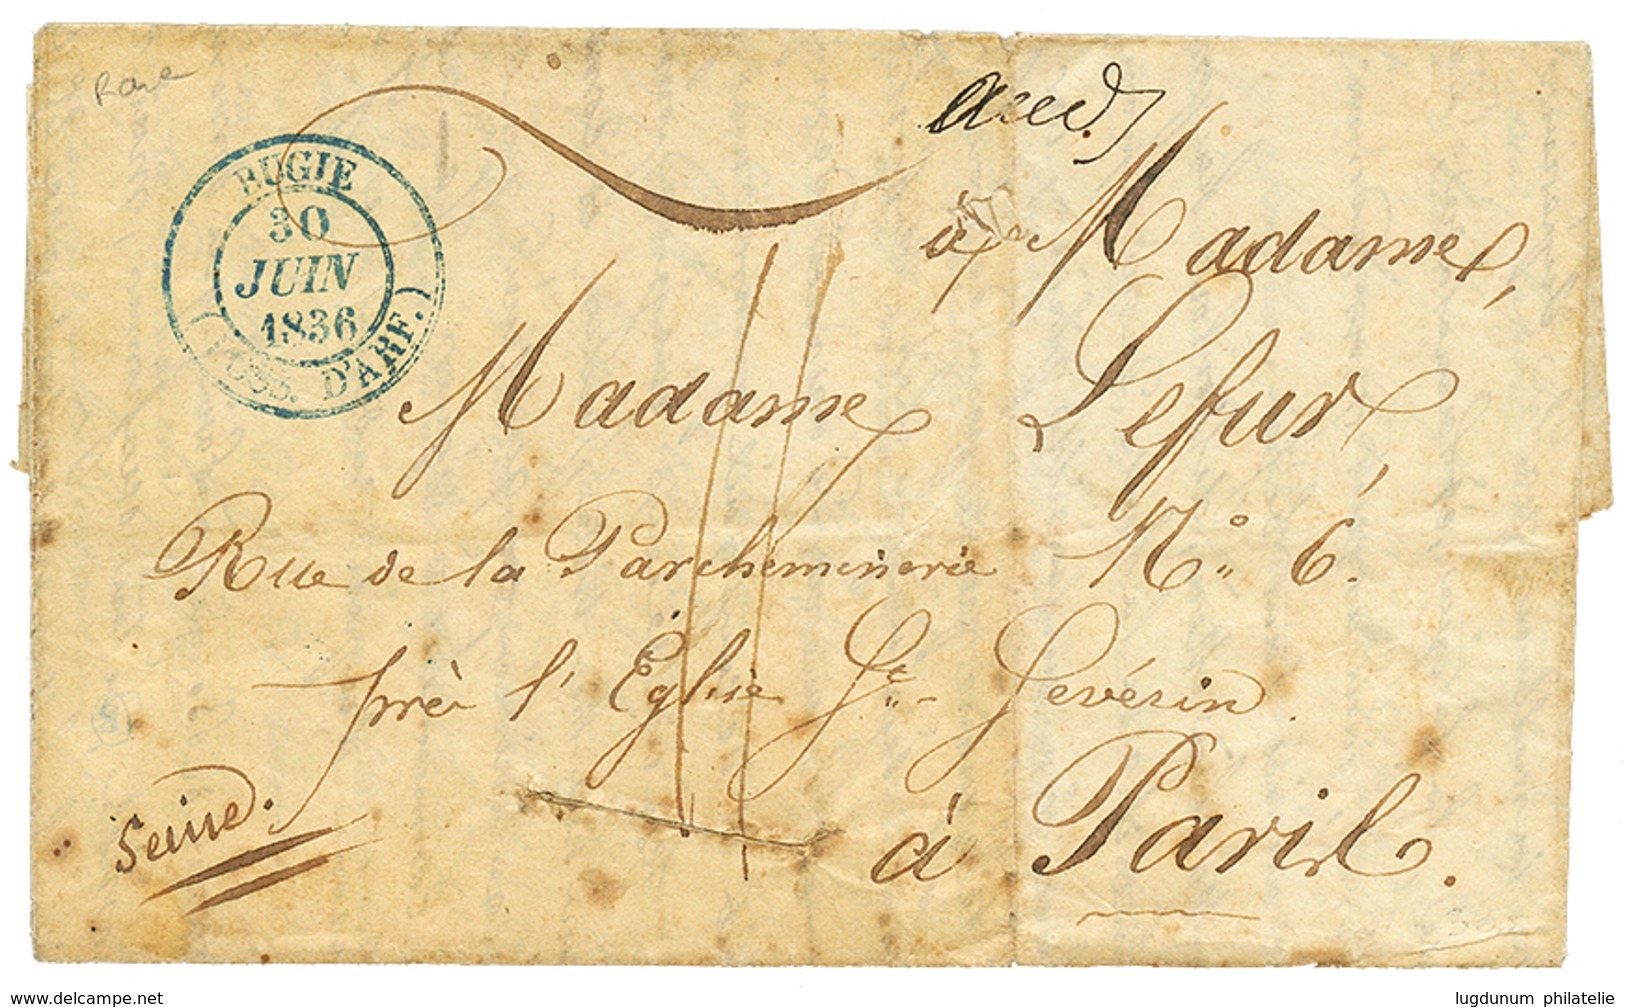 Rare
BUGIE
30
JUIN
1836
(POSS. D'AFR.)
à Madame,
Madame Lefur,
Rue de la Parcheminerie N° 6.
près l'Eglise St. Sevérin.
Seine.
à Paris.
delcampe.net
lugdunum philatelie